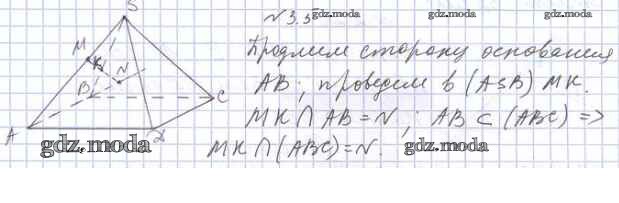 №3.5
gdz.moda
gdz.moda
gdz.moda
S
M
K
N
B
C
A
D
Продлим сторону основания
AB; проведем в (ASB) MK.
MK ∩ AB = N; AB ⊂ (ABC) =>
MK ∩ (ABC) = N.
gdz.moda
gdz.moda